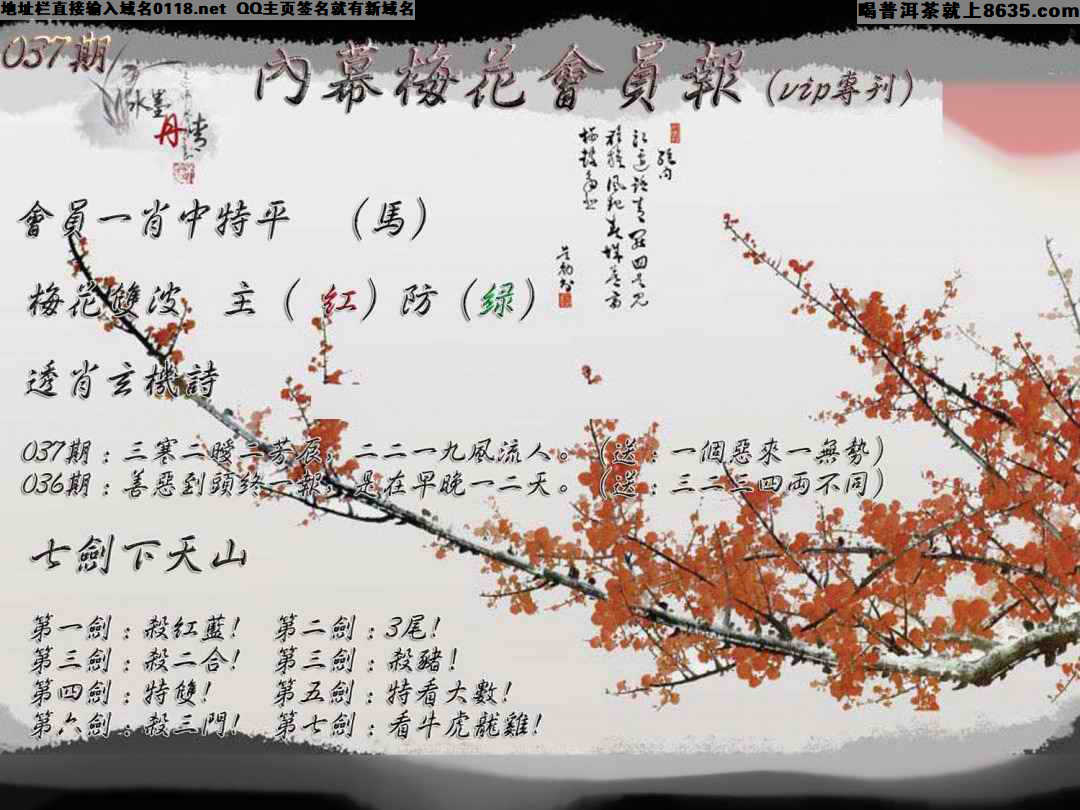 地址栏直接输入域名0118.net QQ主页签名就有新域名
喝普洱茶就上8635.com
037期
水墨丹青
內幕梅花會員報(vip專刊)
會員一肖中特平 （馬）
梅花雙波 主（紅）防（绿）
透肖玄機詩
037期：三寒二曖二芳辰，二二一九風流人。（送：一個惡來一無勢）
036期：善惡到頭終一報，是在早晚一二天。（送：三二三四兩不同）
七劍下天山
第一劍：殺紅藍！ 第二劍：3尾！
第三劍：殺二合！ 第三劍：殺豬！
第四劍：特雙！ 第五劍：特看大數！
第六劍：殺三門！ 第七劍：看牛虎龍雞！